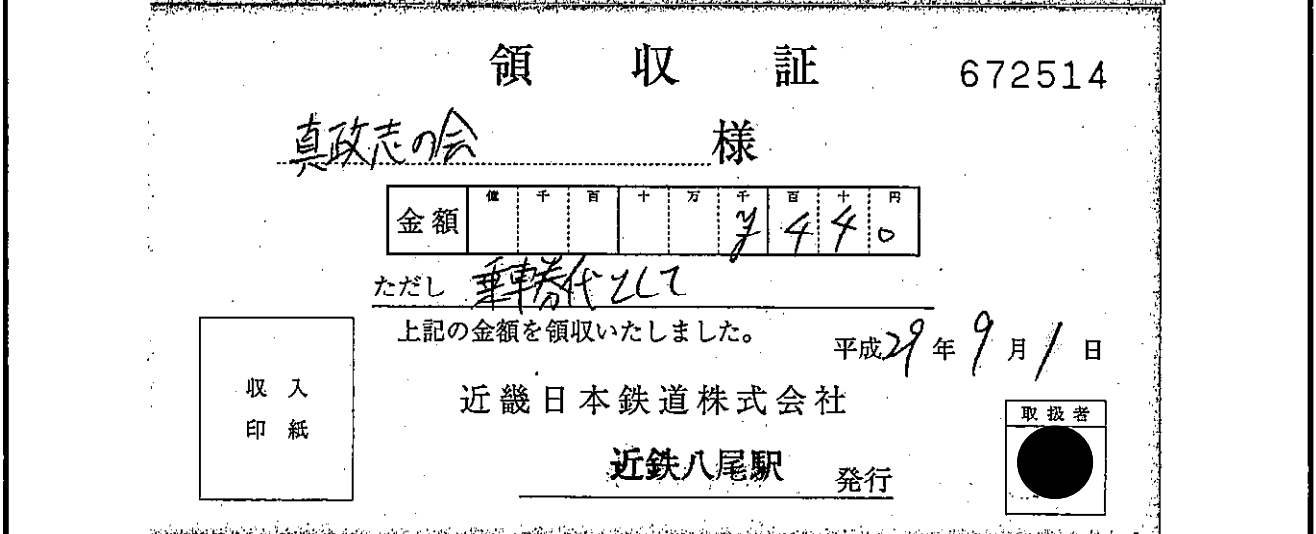 領収証 672514
真政志の会 様
億 千 百 十 万 千 百 十 円
金額 ¥440
ただし 乗車券代として
上記の金額を領収いたしました。
平成29年9月1日
収入
印紙
近畿日本鉄道株式会社
取扱者
近鉄八尾駅 発行